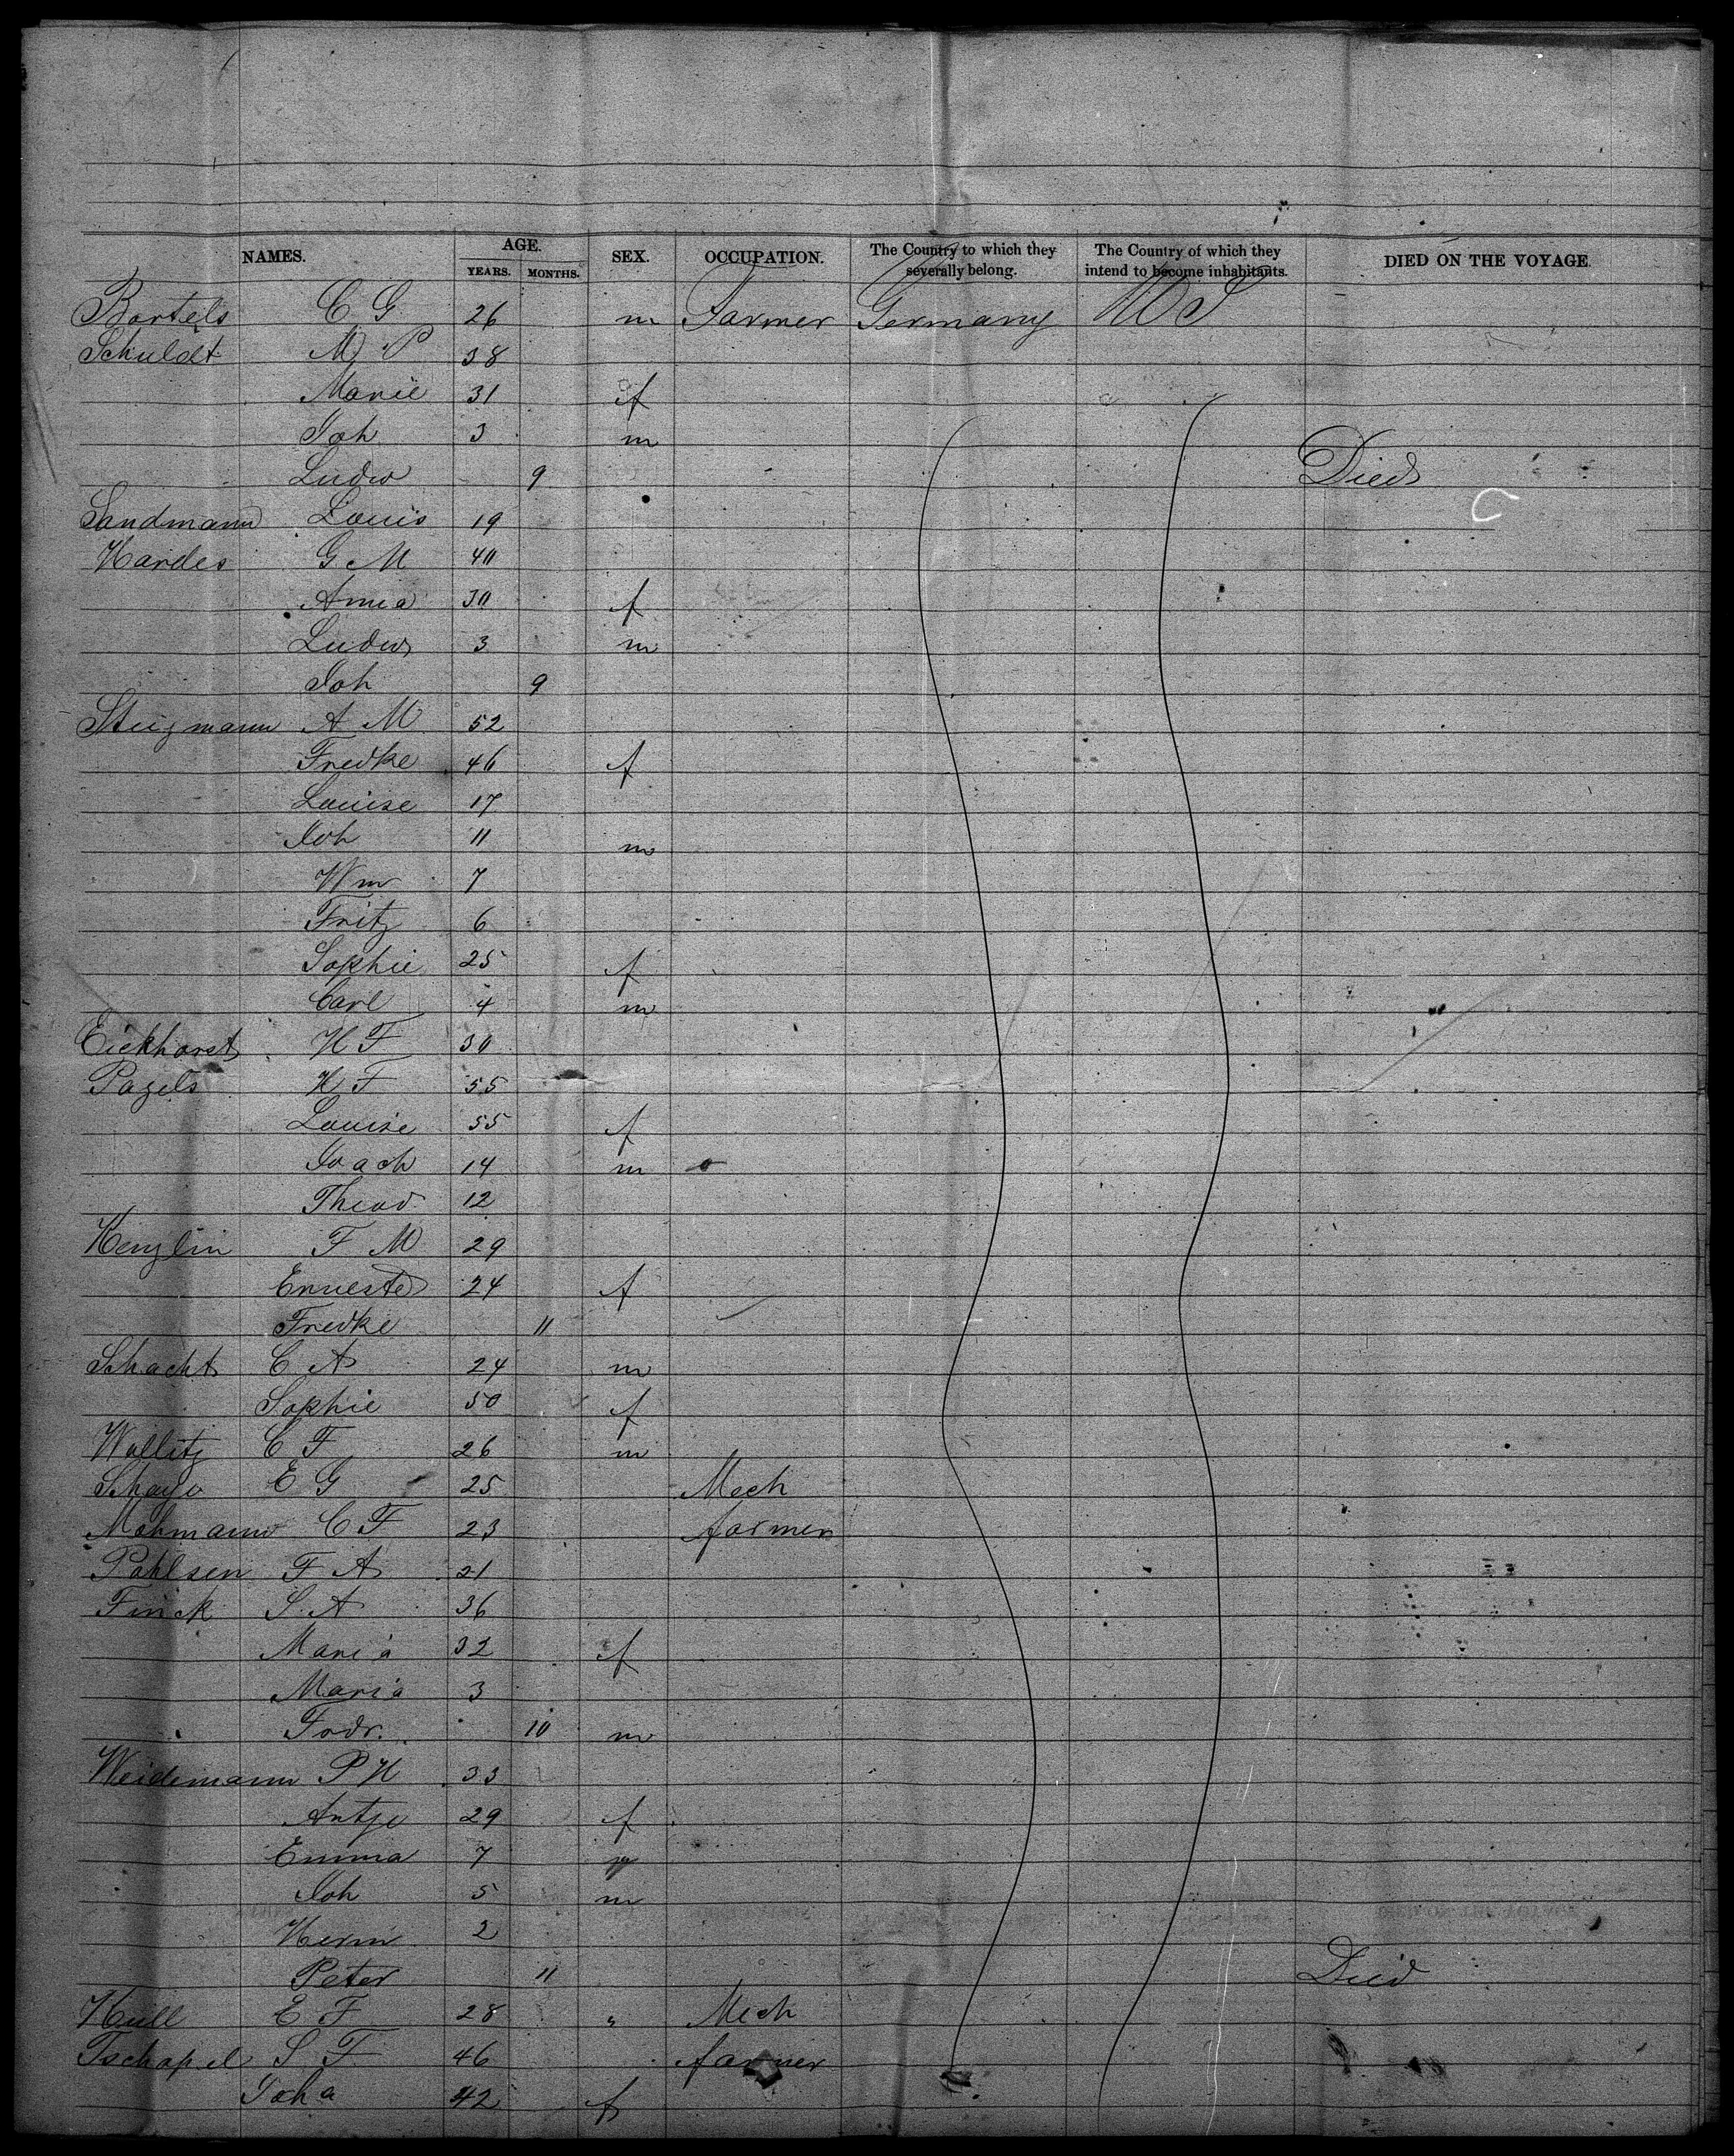 NAMES. AGE. SEX. OCCUPATION. The Country to which they severally belong. The Country of which they intend to become inhabitants. DIED ON THE VOYAGE
YEARS. MONTHS.
Bartels C G 26 m Farmer Germany U S
Schuldt M P 38
Marie 31 f
Joh 3 m
Ludw 9 Died
Sandmann Louis 19
Hardes G M 40
Anna 30 f
Ludw 3 m
Joh 9
Stegmann A M 52
Fredke 46 f
Louise 17
Joh 11 m
Wm 7
Fritz 6
Sophie 25 f
Carl 4 m
Eickhorst H F 30
Pagels H F 55
Louise 55 f
Joach 14 m
Theod 12
Kenzlin F M 29
Erneste 24 f
Fredke 11
Schacht C A 24 m
Sophie 50 f
Wallitz C F 26 m
E G 25 Mech
Mahmann C F 23 farmer
Pahlsen F A 21
Finck S A 36
Maria 32 f
Maria 3
Fredr. 10 m
Weidemann P H 33
Antje 29 f
Emma 7
Joh 5 m
Herm 2
Peter 11 Died
Kull E F 28 " Mech
Tschapel S F 46 farmer
Joha 42 f